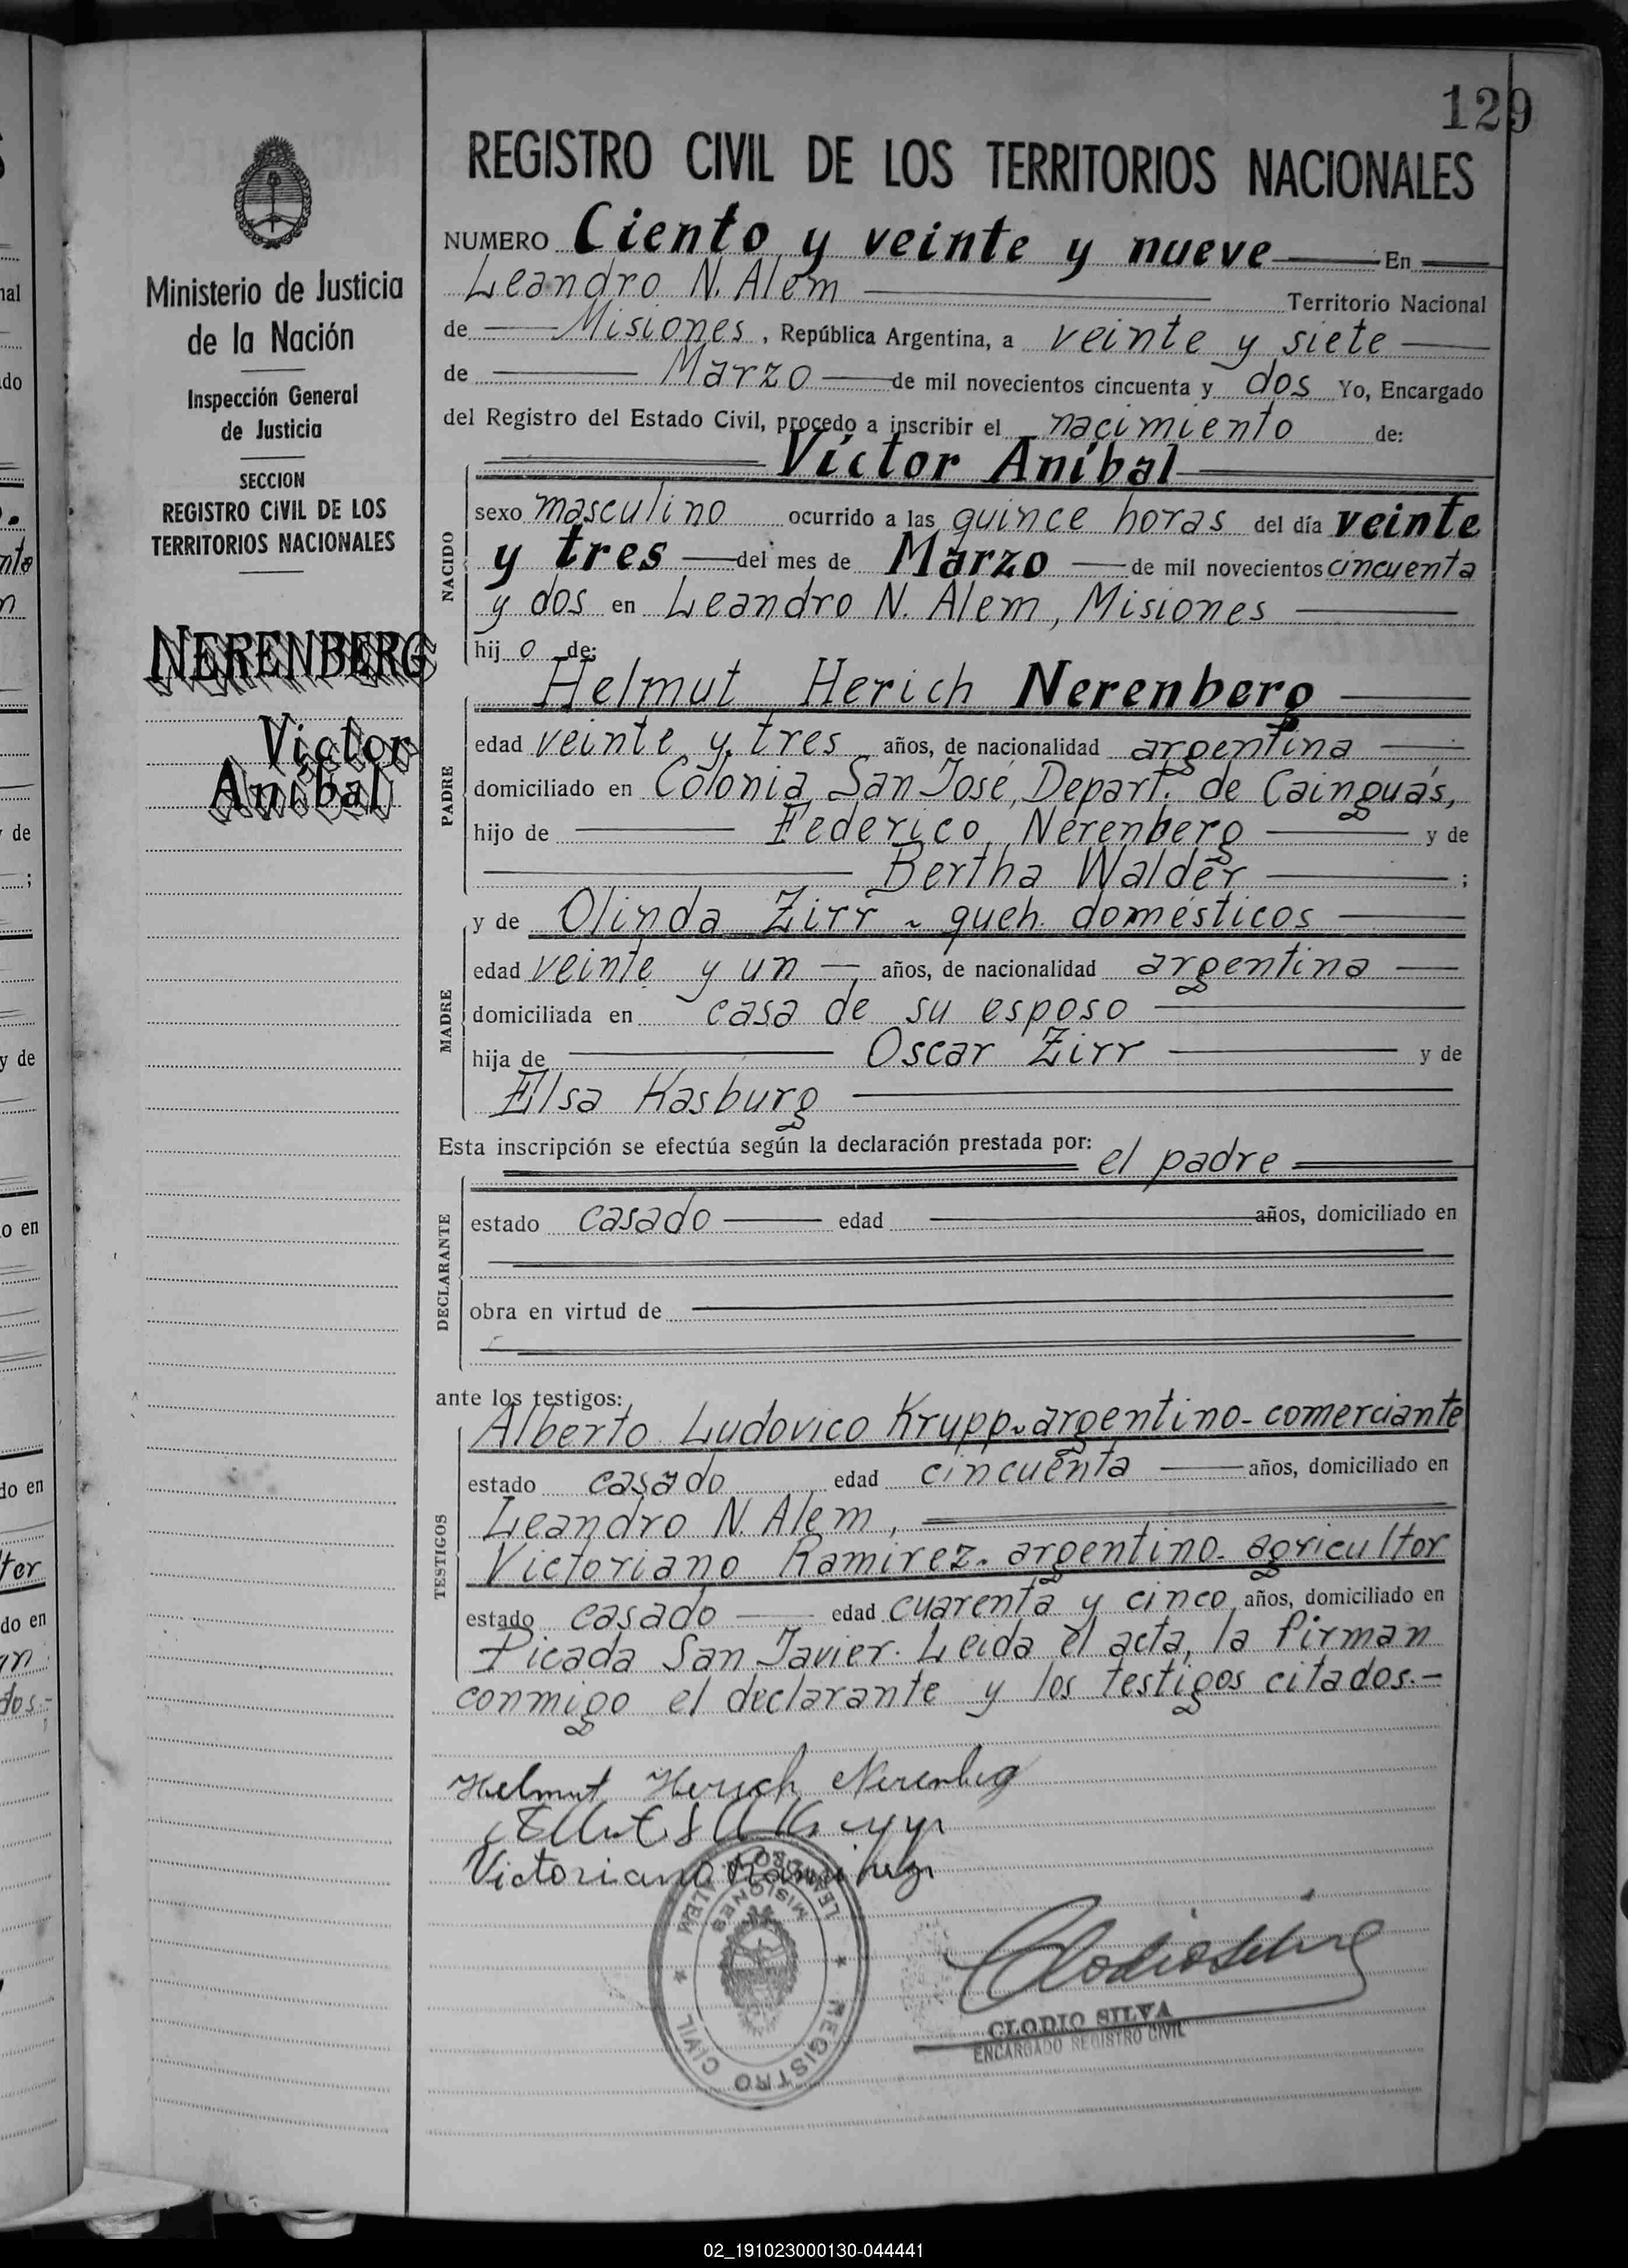 129
REGISTRO CIVIL DE LOS TERRITORIOS NACIONALES
Ministerio de Justicia
de la Nación
Inspección General
de Justicia
SECCION
REGISTRO CIVIL DE LOS
TERRITORIOS NACIONALES
NERENBERG
Víctor
Aníbal
NUMERO Ciento y veinte y nueve En
Leandro N. Alem Territorio Nacional
de Misiones, República Argentina, a veinte y siete
de Marzo de mil novecientos cincuenta y dos Yo, Encargado
del Registro del Estado Civil, procedo a inscribir el nacimiento de:
Víctor Aníbal
NACIDO
sexo masculino ocurrido a las quince horas del día veinte
y tres del mes de Marzo de mil novecientos cincuenta
y dos en Leandro N. Alem, Misiones
hij o de:
Helmut Herich Nerenberg
PADRE
edad veinte y tres años, de nacionalidad argentina
domiciliado en Colonia San José, Depart. de Cainguás,
hijo de Federico Nerenberg y de
Bertha Walder ;
y de Olinda Zirr ~ queh. domésticos
MADRE
edad veinte y un años, de nacionalidad argentina
domiciliada en casa de su esposo
hija de Oscar Zirr y de
Elsa Kasburg
Esta inscripción se efectúa según la declaración prestada por:
el padre
DECLARANTE
estado casado edad años, domiciliado en
obra en virtud de
ante los testigos:
Alberto Ludovico Krupp~argentino-comerciante
TESTIGOS
estado casado edad cincuenta años, domiciliado en
Leandro N. Alem,
Victoriano Ramirez- argentino- agricultor
estado casado edad cuarenta y cinco años, domiciliado en
Picada San Javier. Leida el acta, la firman
conmigo el declarante y los testigos citados.-
Helmut Herich Nerenberg
Victoriano Ramirez
LEANDRO N. ALEM
MISIONES
REGISTRO CIVIL
CLODIO SILVA
ENCARGADO REGISTRO CIVIL
02_191023000130-044441